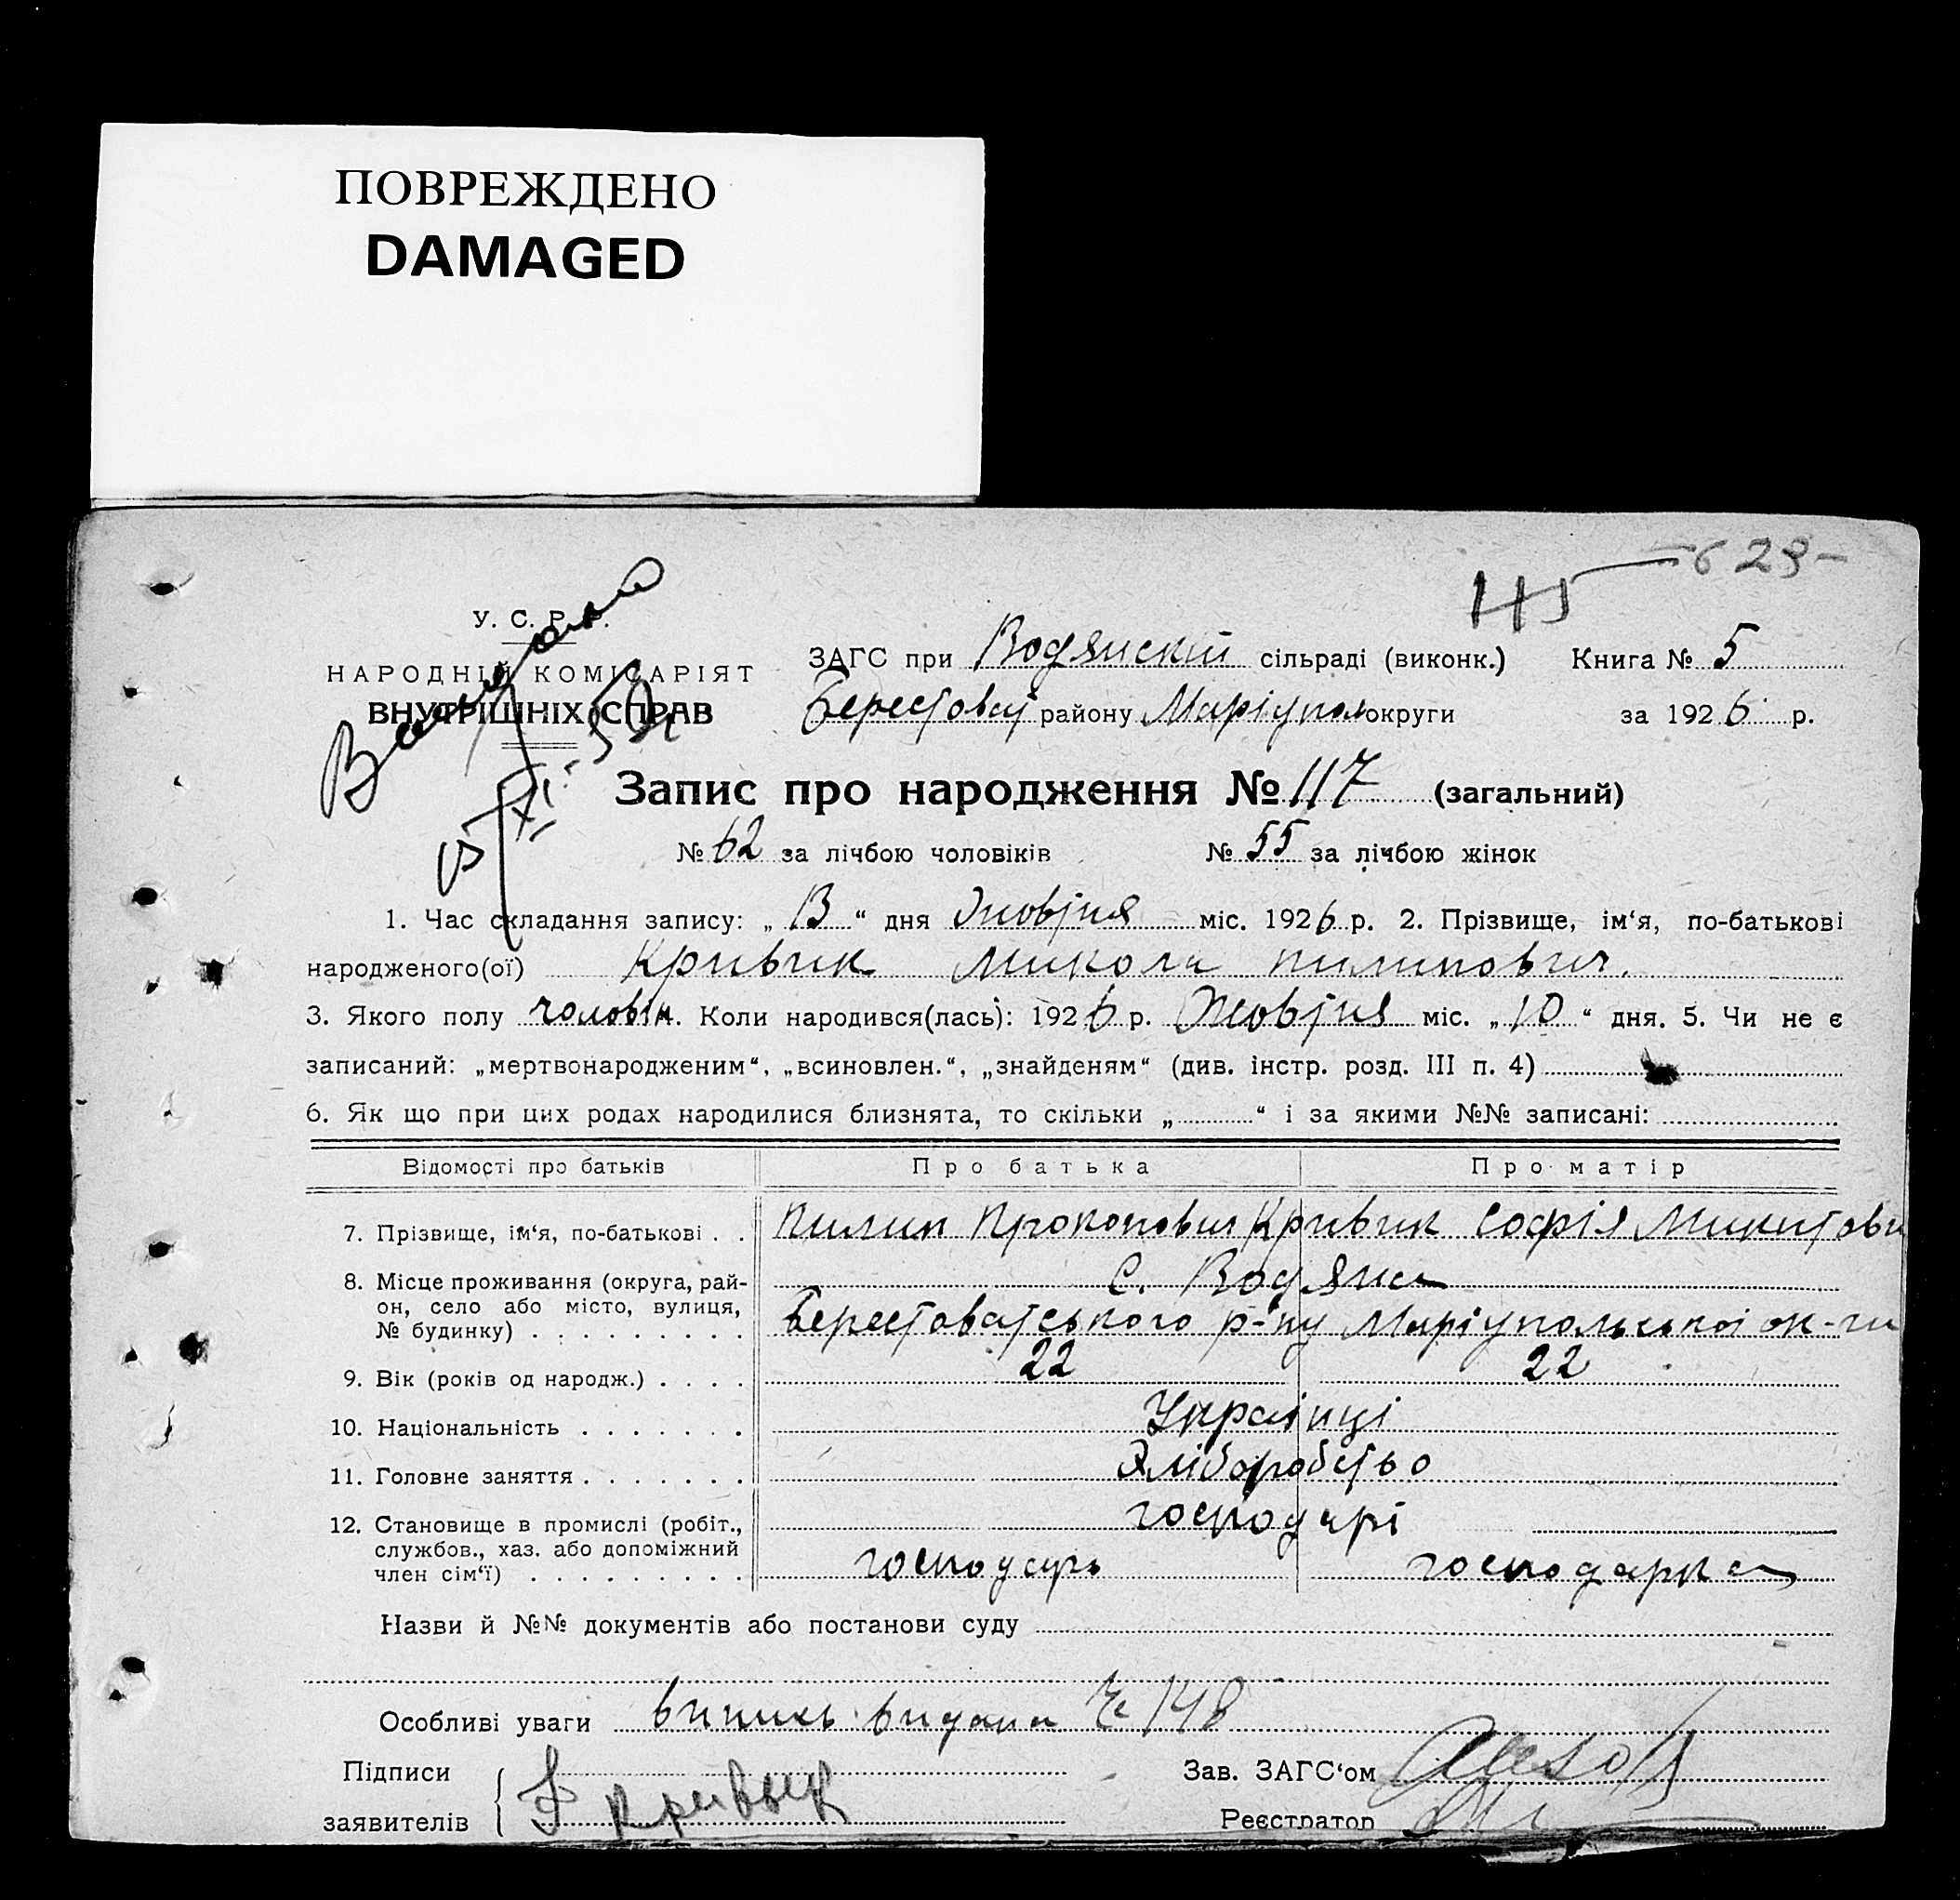 ПОВРЕЖДЕНО
DAMAGED
623
У. С. Р. Р.
НАРОДНІЙ КОМІСАРІЯТ
ВНУТРІШНІХ СПРАВ
ЗАГС при Водянскій сільраді (виконк.) Книга № 5
Берестоват району Маріупол округи за 1926 р.
Запис про народження № 117 (загальний)
№ 62 за лічбою чоловіків № 55 за лічбою жінок
1. Час складання запису: „ 13 “ дня Жовтня міс. 1926 р. 2. Прізвище, ім‘я, по-батькові
народженого(ої) Кривик Микола Пилипович.
3. Якого полу чоловік 4. Коли народився(лась): 1926 р. Жовтня міс. „ 10 “ дня. 5. Чи не є
записаний: „мертвонародженим“, „всиновлен.“, „знайденям“ (див. інстр. розд. III п. 4)
6. Як що при цих родах народилися близнята, то скільки „ “ і за якими №№ записані:
Відомості про батьків Про батька Про матір
7. Прізвище, ім‘я, по-батькові . . Пилип Прокопович Кривик Софія Микитовн
8. Місце проживання (округа, рай- с. Водяна
он, село або місто, вулиця,
№ будинку) . . . . . . . . . Берестоватського р-ну Маріупольської ок-ги
9. Вік (років од народж.) . . . . 22 22
10. Національність . . . . . . . Українці
11. Головне заняття . . . . . . . Хліборобство
12. Становище в промислі (робіт., господарі
службов., хаз. або допоміжний
член сім‘ї) . . . . . . . . . господарь господарка
Назви й №№ документів або постанови суду
Особливі уваги випись видана № 148
Підписи Зав. ЗАГС‘ом
заявителів Кривык Реєстратор